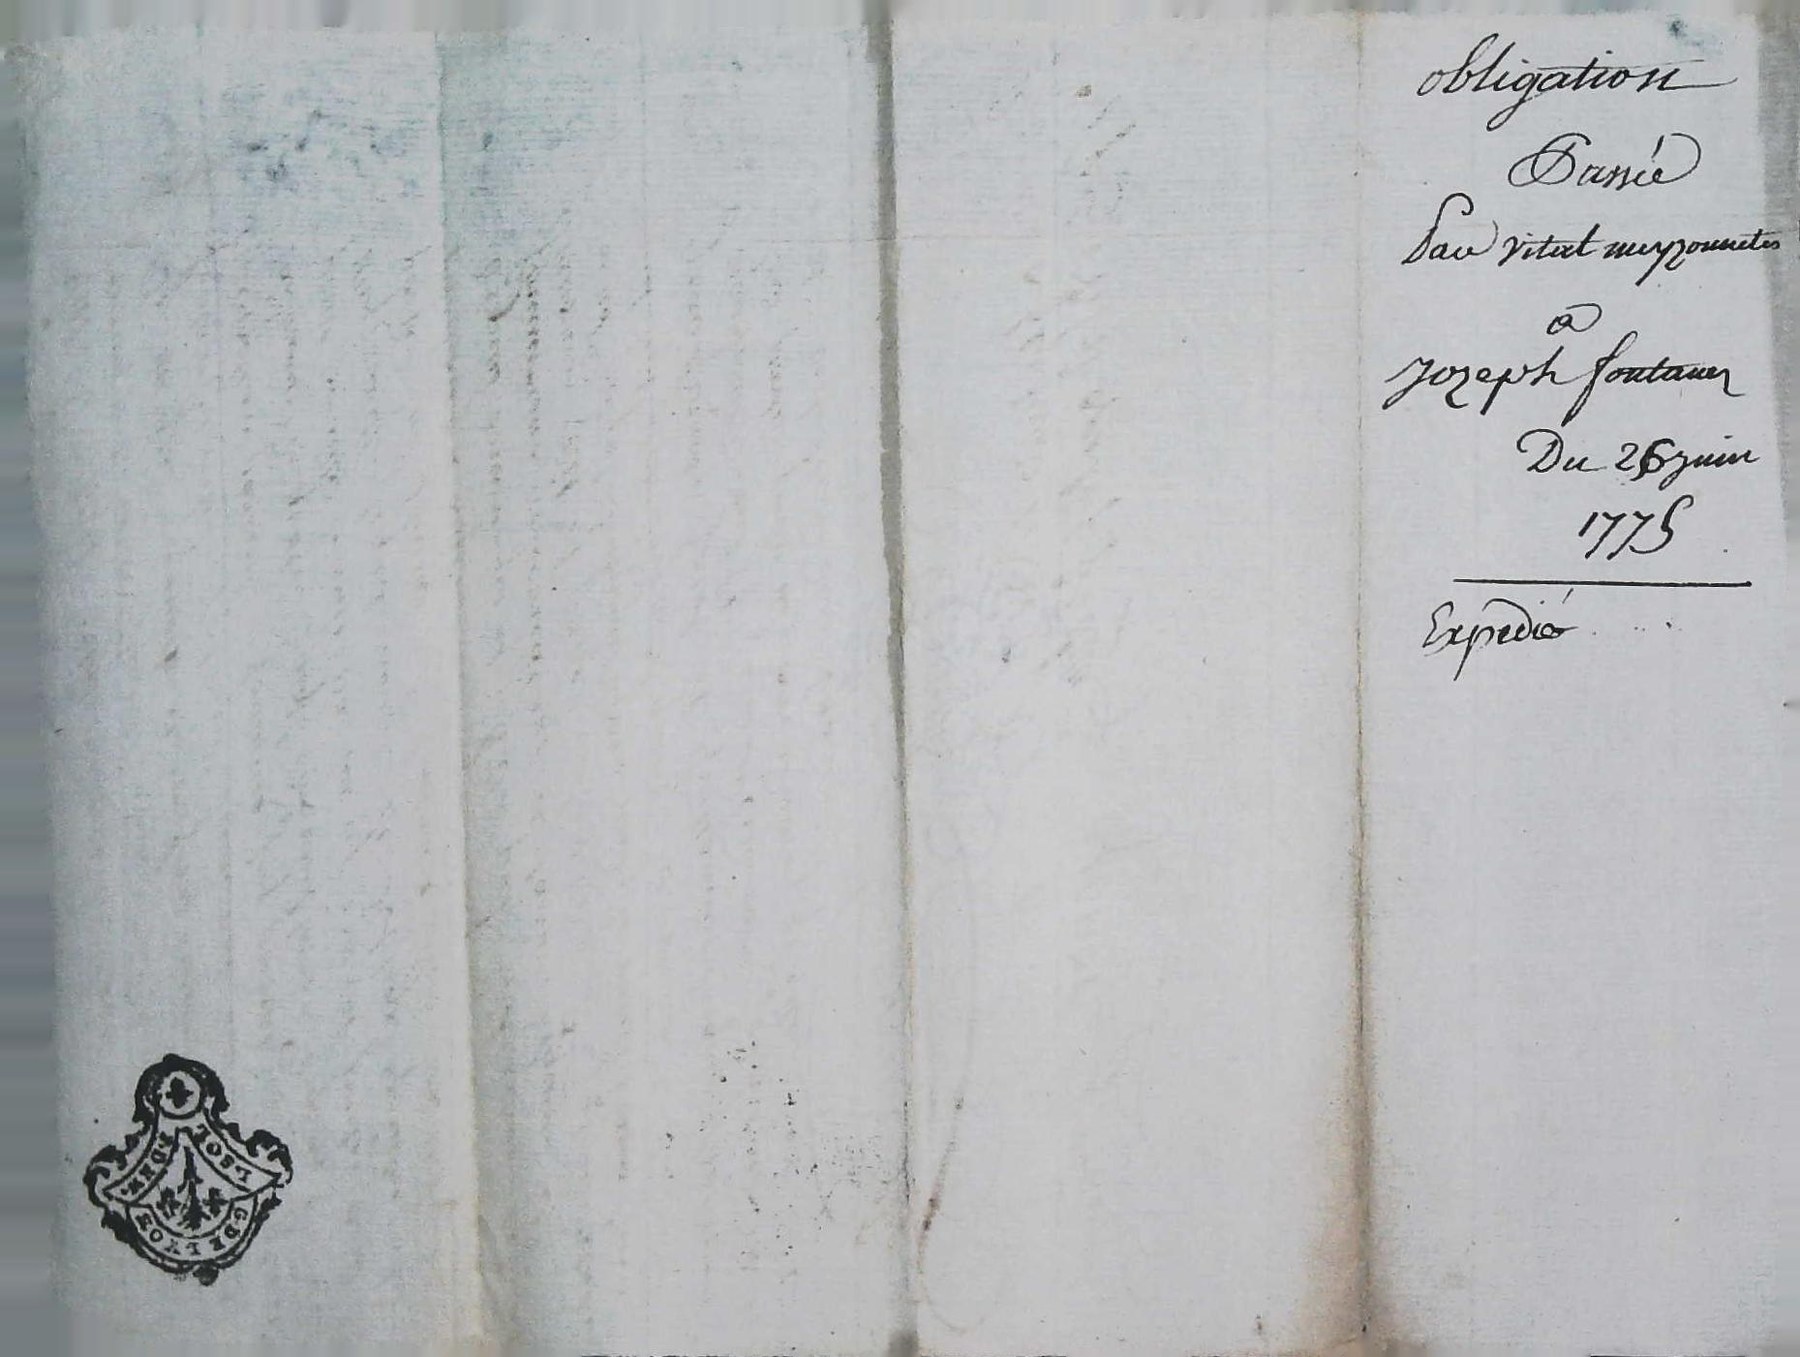 obligation
Passée
Par vital meyzonnetes
a
Jozeph fontanes
Du 26 juin
1775
Expédié
G DE LYON